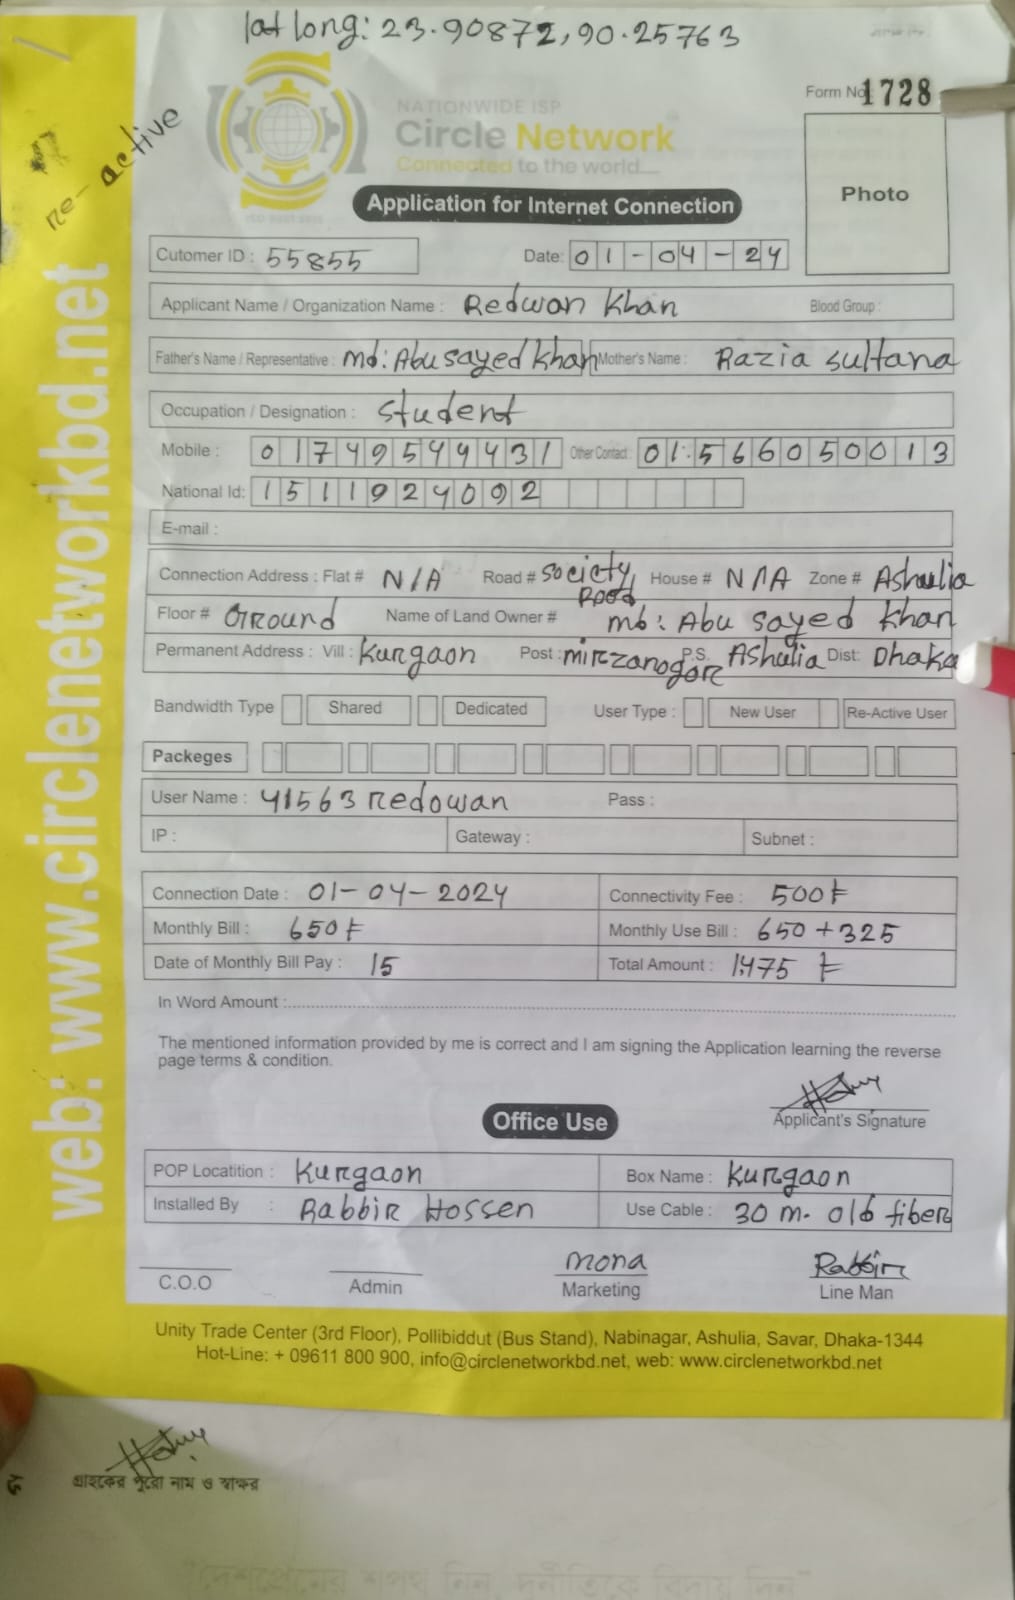 lat long: 23.90872, 90.25763
re-active
NATIONWIDE ISP
Circle Network
Connected to the world...
ISO 9001:2015
Form No 1728
Photo
Application for Internet Connection
Cutomer ID : 55855
Date: 01-04-24
Applicant Name / Organization Name : Redwan Khan Blood Group :
Father's Name / Representative : Md: Abu sayed khan Mother's Name : Razia sultana
Occupation / Designation : Student
Mobile : 01749549431 Other Contact : 01566050013
National Id: 1511924092
E-mail :
Connection Address : Flat # N/A Road # Society Road House # N/A Zone # Ashulia
Floor # Ground Name of Land Owner # Md: Abu sayed khan
Permanent Address : Vill : Kurgaon Post : mirzanogor P.S. Ashulia Dist: Dhaka
Bandwidth Type Shared Dedicated User Type : New User Re-Active User
Packeges
User Name : 41563redowan Pass :
IP : Gateway : Subnet :
Connection Date : 01-04-2024 Connectivity Fee : 500৳
Monthly Bill : 650৳ Monthly Use Bill : 650+325
Date of Monthly Bill Pay : 15 Total Amount : 1475 ৳
In Word Amount :
The mentioned information provided by me is correct and I am signing the Application learning the reverse
page terms & condition.
Applicant's Signature
Office Use
POP Locatition : Kurgaon Box Name : Kurgaon
Installed By : Rabbir Hossen Use Cable : 30 m. old fiber
Mona Rabbir
C.O.O Admin Marketing Line Man
Unity Trade Center (3rd Floor), Pollibiddut (Bus Stand), Nabinagar, Ashulia, Savar, Dhaka-1344
Hot-Line: + 09611 800 900, info@circlenetworkbd.net, web: www.circlenetworkbd.net
web: www.circlenetworkbd.net
গ্রাহকের পুরো নাম ও স্বাক্ষর
"দেশপ্রেমের শপথ নিন, দুর্নীতিকে বিদায় দিন"